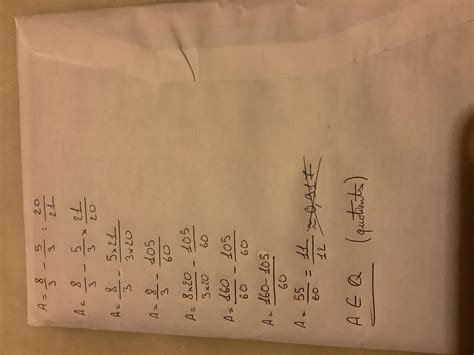 A = 8/3 - 5/3 : 20/21
A = 8/3 - 5/3 × 21/20
A = 8/3 - 5×21/3×20
A = 8/3 - 105/60
A = 8×20/3×20 - 105/60
A = 160/60 - 105/60
A = 160-105/60
A = 55/60 = 11/12
A ∈ Q (quotients)